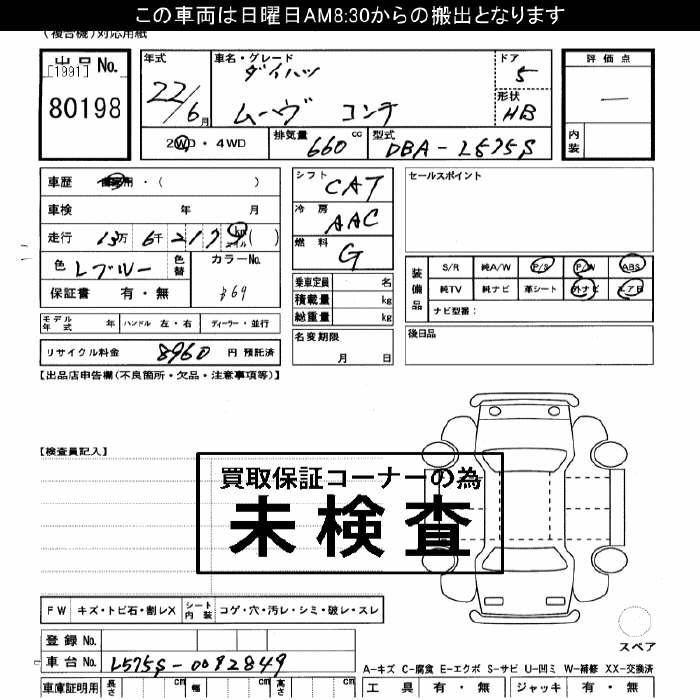 この車両は日曜日AM8:30からの搬出となります
(複合機)対応用紙
出品No.
[1991]
80198
年式
22/6月
車名・グレード
ダイハツ
ムーヴ コンテ
ドア
5
形状
HB
評価点
—
内装
2WD・4WD
排気量 660 cc
型式 DBA-L575S
車歴 ・( )
車検 年 月
走行 13万 6千 217 km マイル ( )
色 Lブルー 色替
カラーNo.
保証書 有・無
シフト CAT
冷房 AAC
燃料 G
乗車定員 名
積載量 kg
総重量 kg
セールスポイント
装備品
S/R 純A/W P/S P/W ABS
純TV 純ナビ 革シート 外ナビ エアB
ナビ型番:
モデル年式 年 ハンドル 左・右 ディーラー・並行
名変期限
月 日
後日品
リサイクル料金 8960 円 預託済
【出品店申告欄(不良箇所・欠品・注意事項等)】
【検査員記入】
買取保証コーナーの為
未検査
FW キズ・トビ石・割レX シート内装 コゲ・穴・汚レ・シミ・破レ・スレ
スペア
登録No.
車台No. L575S-0082849
A-キズ C-腐食 E-エクボ S-サビ U-凹ミ W-補修 XX-交換済
車庫証明用 長さ cm 幅 cm 高さ cm
工具 有・無 ジャッキ 有・無